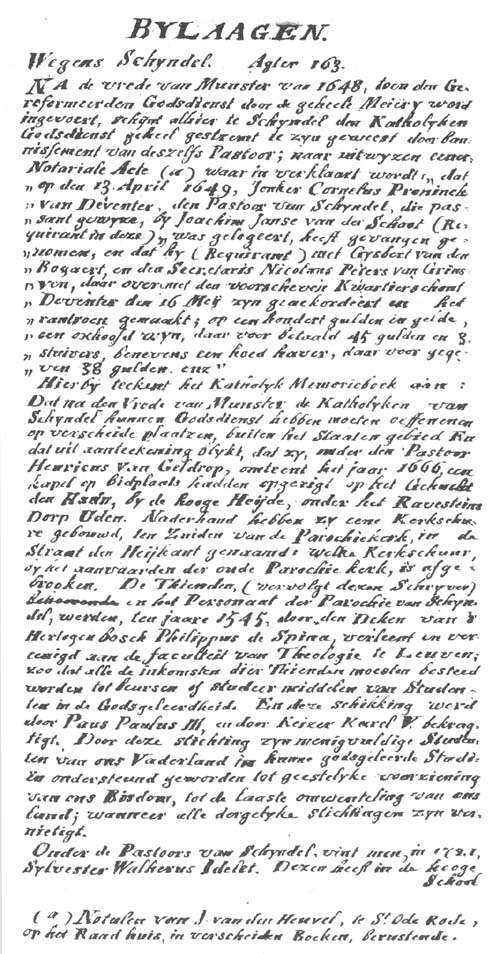 BYLAAGEN.
Wegens Schyndel. Agter 163.
NA de vrede van Munster van 1648, toen den Ge-
reformeerden Godsdienst door de geheele Meiery word
ingevoert, schijnt alhier te Schyndel den Katholyken
Godsdienst geheel gestremt te zyn geweest door ban-
nissement van deszelfs Pastoor; naar uitwyzen eener
Notariale Acte (a) waar in verklaart wordt: „ dat
„ op den 13. April 1649, Jonker Cornelus Proninck
„ van Deventer, den Pastoor van Schyndel, die pas-
„ sant gewyze, by Joachim Janse van der Schoot (Re-
quirant in deze) „ was gelogeert, heeft gevangen ge-
„ nomen, en dat hy (Requirant) met Gysbert van den
„ Bogaert, en den Secretaris Nicolaus Peters van Grins-
„ ven, daar over met den voorscheven Kwartierschout
„ Deventer den 16 Meij zyn geaekordeert en het
„ rantsoen gemaakt; op een hondert gulden in gelde,
„ een oxhoofd wyn, daar voor betaald 45 gulden en 3.
„ stuivers, benevens een hoed haver, daar voor gege-
„ ven 38 gulden. enz"
Hierby teekent het Katholyk Memorieboek aan:
Dat na den Vrede van Munster de Katholyken van
Schyndel hunnen Godsdienst hebben moeten oeffenenen
op verscheide plaatzen, buiten het Staaten gebied En
dat uit aanteekening blykt, dat zy, onder den Pastoor
Henricus van Geldrop, omtrent het jaar 1666, een
kapel op bidplaats hadden opgerigt op het Gehucht
den Hadn, by de hooge Heijde, onder het Ravesteins
Dorp Uden. Naderhand hebben zy eene Kerkschu-
re gebouwd, ten Zuiden van de Parochiekerk, in de
Straat den Heijkant genaamd: welke Kerkschuur,
by het aanvaarden der oude Parochie kerk, is afge-
brooken. De Thienden, (vervolgt dezen Schryver)
en het Personaat der Parochie van Schyn-
del, werden, ten jaare 1545, door den Deken van 's
Hertogenbosch Philippus de Spina, verleent en ver-
eenigd aan de faculteit van Theologie te Leuven;
zoo dat alle de inkomsten dier Thienden moeten besteed
worden tot beursen of studeer middelen van Studen-
ten in de Godsgeleerdheid. En deze schikking werd
door Paus Paulus III, en door Keizer Karel V. bekrag-
tigt. Door deze stichting zyn menigvuldige Studen-
ten van ons Vaderland in hunne godsgeleerde Studi-
ën ondersteund geworden tot geestelyke voorziening
van ons Bisdom, tot de laaste omwenteling van ons
land; wanneer alle dergelyke stichtingen zyn ver-
nietigt.
Onder de Pastoors van Schyndel, vint men, in 1721,
Sylvester Waltherus Idelet. Dezen heeft in de hooge
School
(a) Notulen van J. van den Heuvel, te St. Ode Rode,
op het Raadhuis, in verscheiden Boeken, berustende.